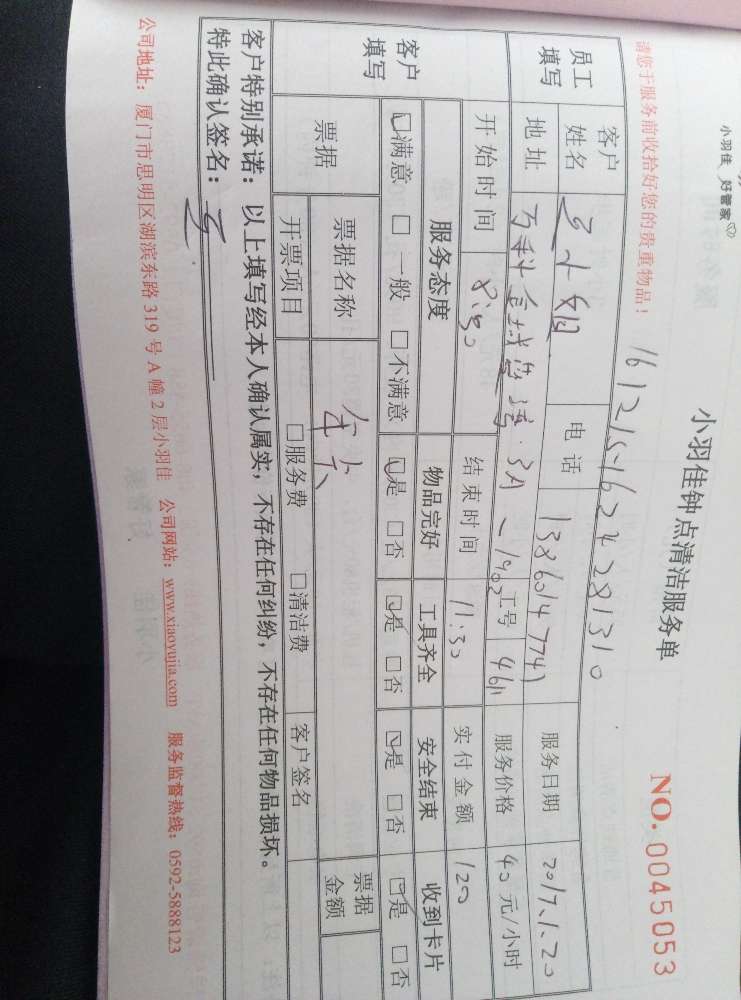 小羽佳 好管家
小羽佳钟点清洁服务单
NO. 0045053
请您于服务前收拾好您的贵重物品！
1612151624281310
员工填写 客户姓名 小姐 电话 13860147747 服务日期 2017.1.20
地址 万科金域华府 3A-1902 工号 4611 服务价格 40 元/小时
开始时间 8:30 结束时间 11:30 实付金额 120
客户填写 服务态度 物品完好 工具齐全 安全结束 收到卡片
☑满意 □一般 □不满意 ☑是 □否 ☑是 □否 ☑是 □否 ☑是 □否
票据 票据名称 票据金额
开票项目 □服务费 □清洁费 客户签名
客户特别承诺：以上填写经本人确认属实，不存在任何纠纷，不存在任何物品损坏。
特此确认签名：
公司地址：厦门市思明区湖滨东路 319 号 A 幢 2 层小羽佳 公司网站：www.xiaoyujia.com 服务监督热线：0592-5888123